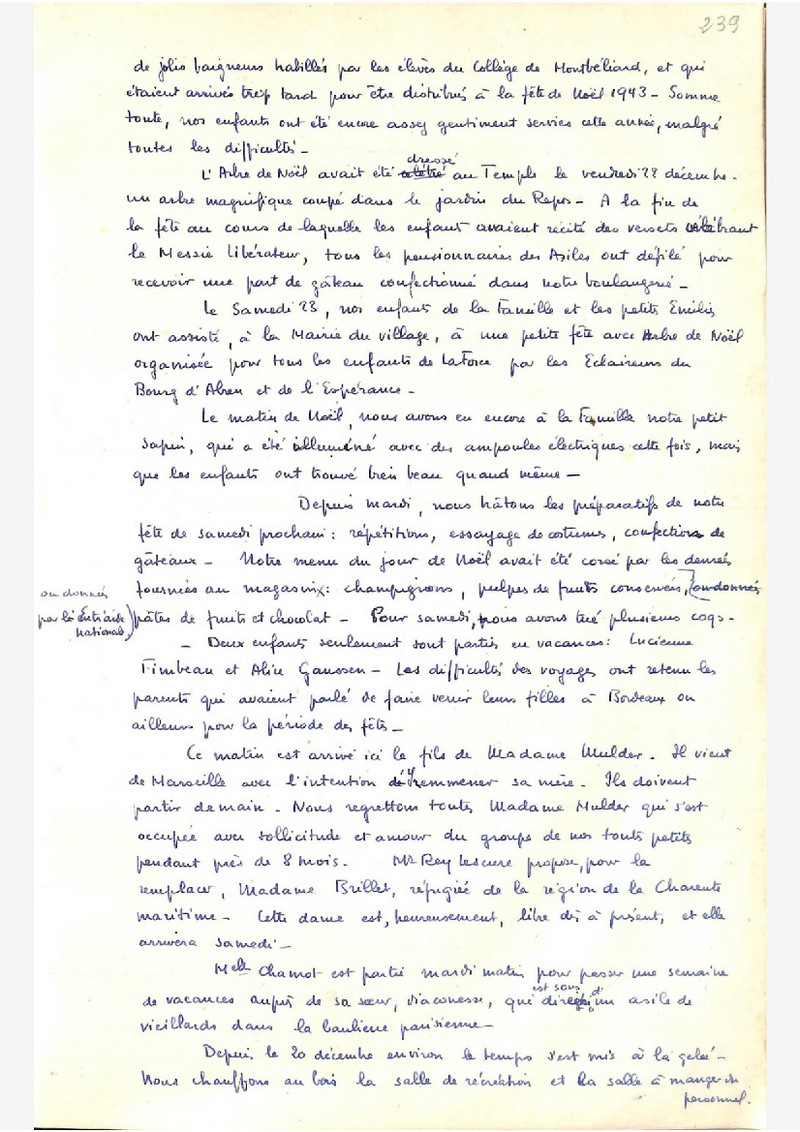 239
de jolis baigneurs habillés par les élèves du Collège de Montbéliard, et qui
étaient arrivés trop tard pour être distribués à la fête de Noël 1943 - Somme
toute, nos enfants ont été encore assez gentiment servies cette année, malgré
toutes les difficultés -
L'Arbre de Noël avait été dressé au Temple le vendredi 22 décembre -
un arbre magnifique coupé dans le jardin du Repos - A la fin de
la fête au cours de laquelle les enfants avaient récité des versets célébrant
le Messie libérateur, tous les pensionnaires des Asiles ont défilé pour
recevoir une part de gâteau confectionné dans notre boulangerie -
Le Samedi 23, nos enfants de la Famille et les petits Emilis
ont assisté, à la Mairie du village, à une petite fête avec Arbre de Noël
organisée pour tous les enfants de LaForce par les Eclaireurs du
Bourg d'Abren et de l'Espérance -
Le matin de Noël, nous avons eu encore à la Famille notre petit
sapin, qui a été illuminé avec des ampoules électriques cette fois, mais
que les enfants ont trouvé bien beau quand même -
Depuis mardi, nous hâtons les préparatifs de notre
fête de samedi prochain : répétitions, essayage de costumes, confection de
gâteaux - Notre menu du jour de Noël avait été corsé par les denrées
fournies au magasin : champignons, pulpes de fruits conservées, ou données
ou données
par le Entr'aide
national,
pâtes de fruits et chocolat - Pour samedi, nous avons tué plusieurs coqs -
- Deux enfants seulement sont parties en vacances : Lucienne
Timbeau et Alice Ganosen - Les difficultés des voyages ont retenu les
parents qui avaient parlé de faire venir leurs filles à Bordeaux ou
ailleurs pour la période des fêtes -
Ce matin est arrivé ici le fils de Madame Mulder. Il vient
de Marseille avec l'intention d'y emmener sa mère. Ils doivent
partir demain - Nous regrettons toutes Madame Mulder qui s'est
occupée avec sollicitude et amour du groupe de nos touts petits
pendant près de 8 mois. Mr Rey Lescure propose, pour la
remplacer, Madame Brillet, réfugiée de la région de la Charente
maritime - Cette dame est, heureusement, libre dès à présent, et elle
arrivera samedi -
Melle Chamot est partie mardi matin pour passer une semaine
de vacances auprès de sa sœur, diaconesse, qui est sous-direct. d'un asile de
vieillards dans la banlieue parisienne -
Depuis le 20 décembre environ le temps s'est mis à la gelée -
Nous chauffons au bois la salle de récréation et la salle à manger du
personnel.